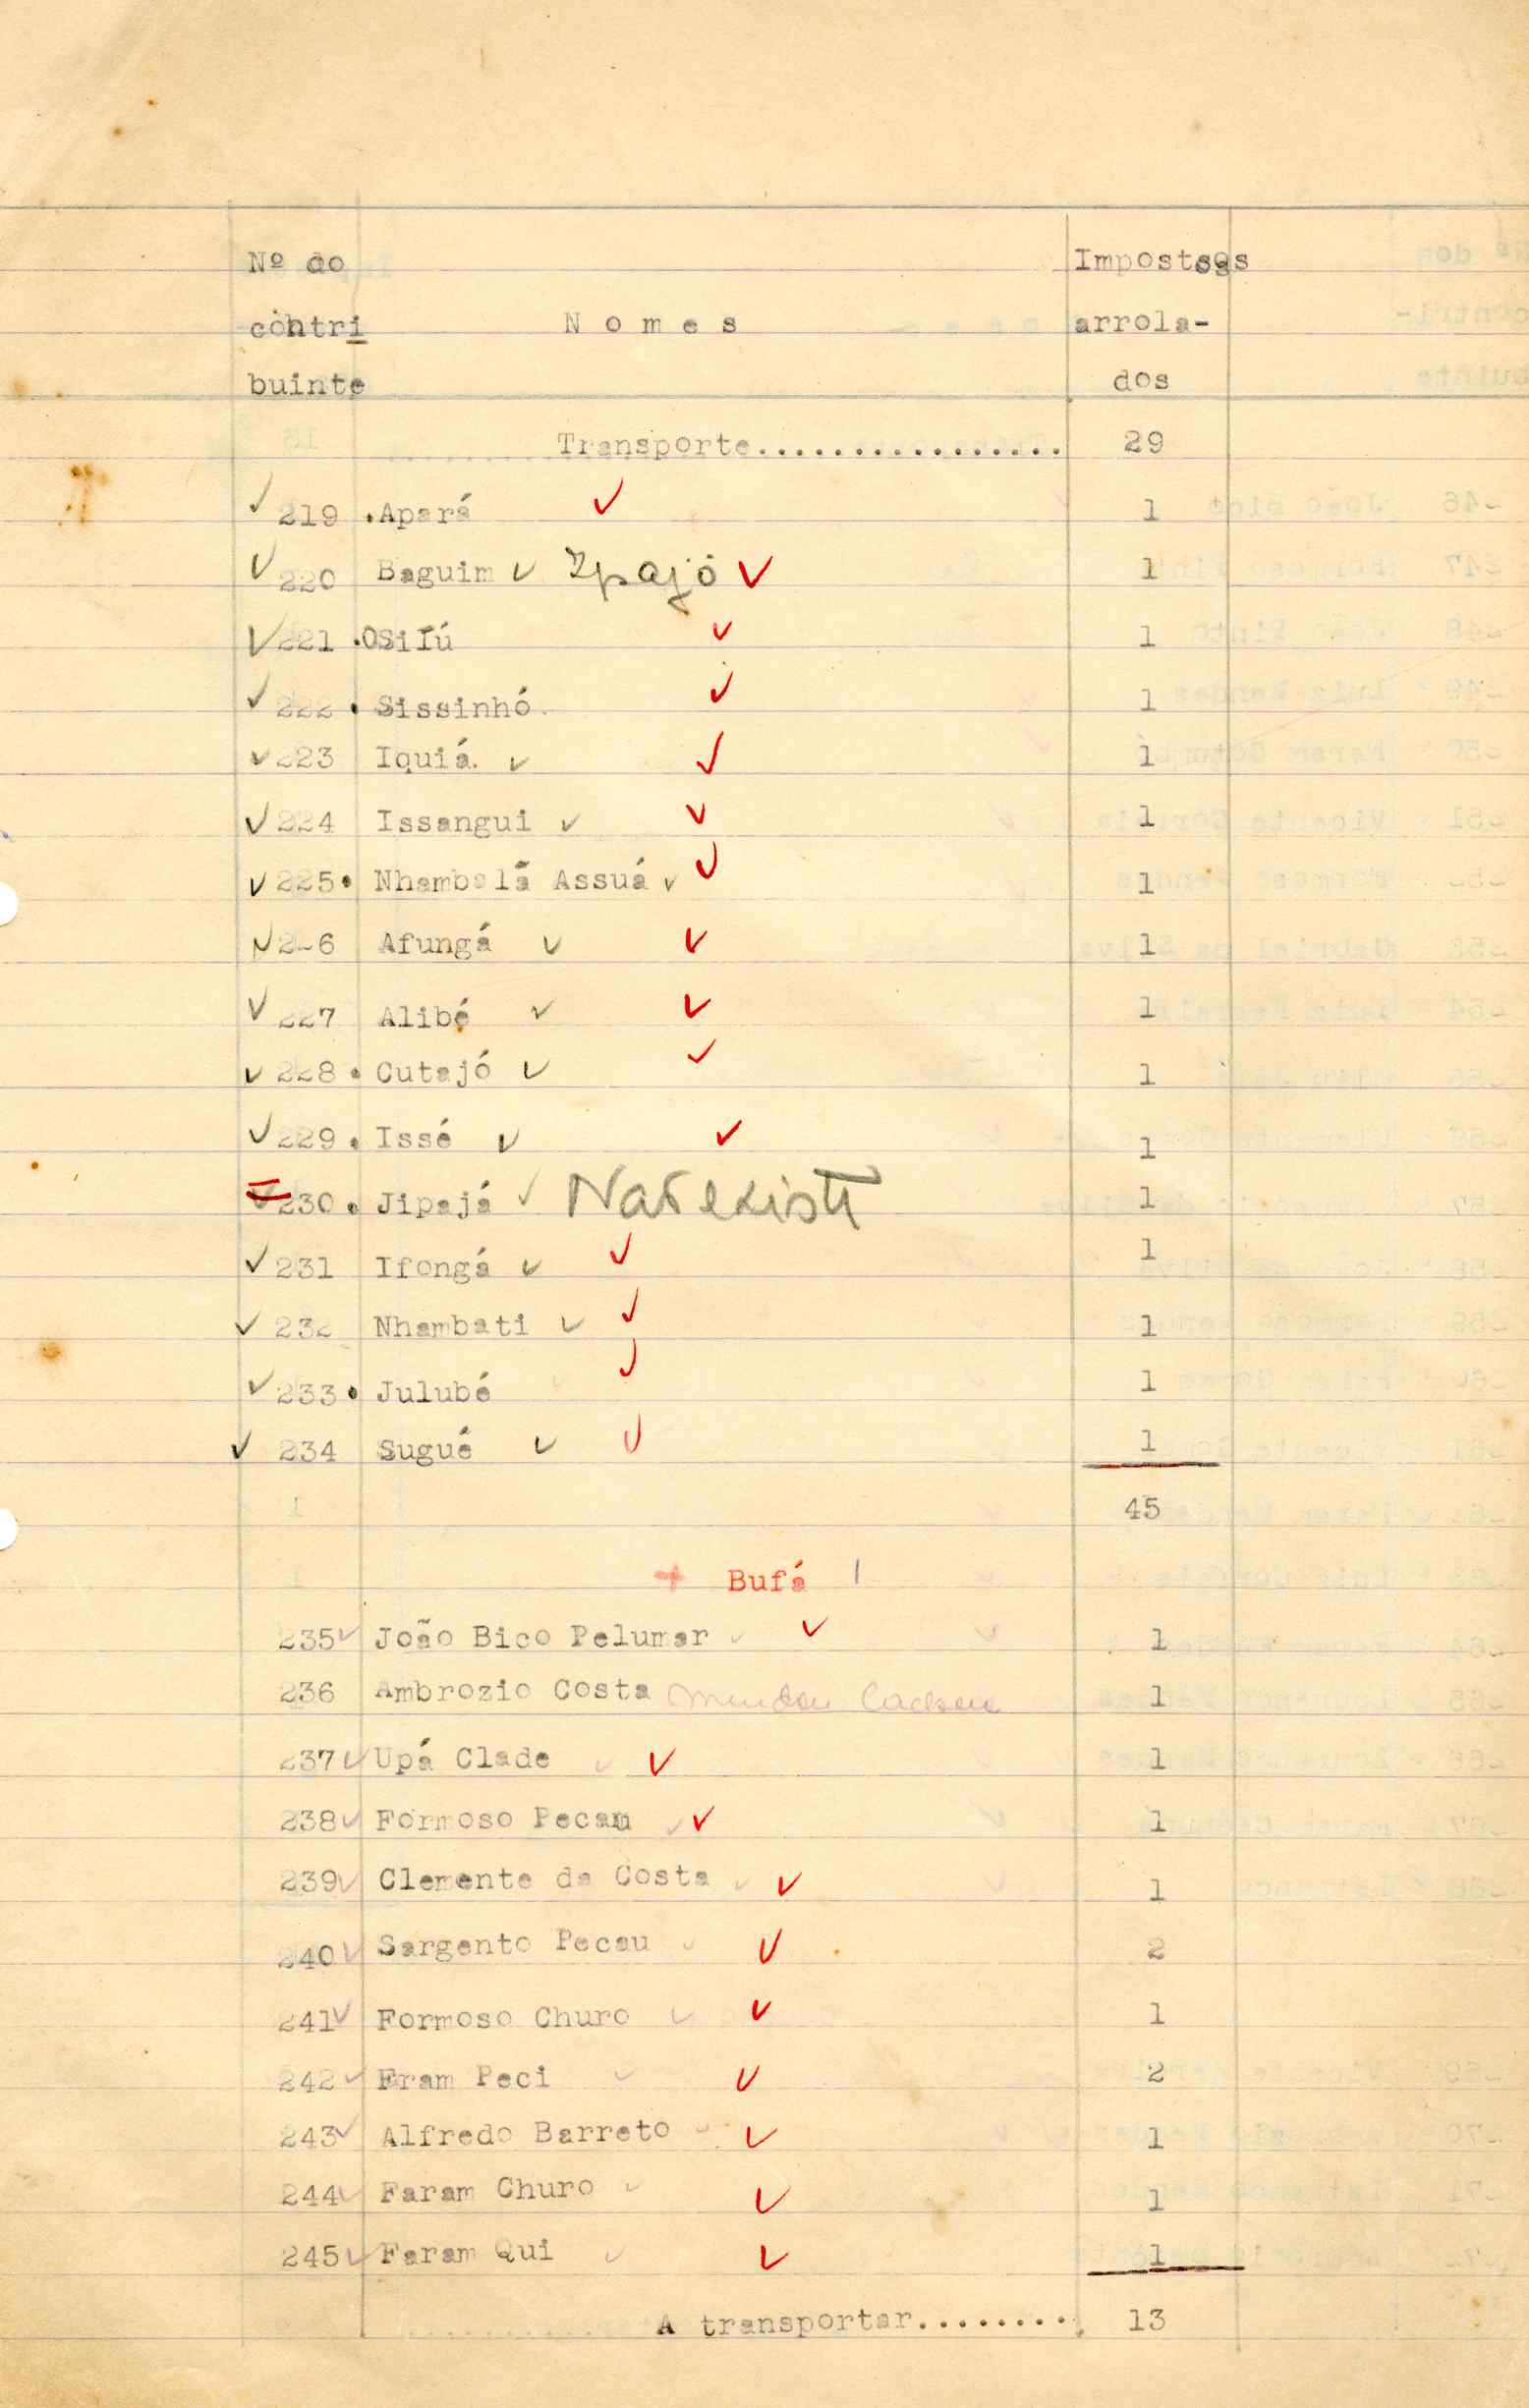 Nº do
contri
buinte
N o m e s
Impostos
arrola-
dos
Transporte................. 29
219 .Apará 1
220 Baguim Ipajó 1
221 .OSilú 1
222 . Sissinhó. 1
223 Iquiá. 1
224 Issangui 1
225. Nhambalã Assuá 1
226 Afungá 1
227 Alibé 1
228 . Cutajó 1
229 . Issé 1
230 . Jipajá Não existe 1
231 Ifongá 1
232 Nhambati 1
233. Julubé 1
234 Sugué 1
45
+ Bufá
235 João Bico Pelumar 1
236 Ambrozio Costa 1
237 Upá Clade 1
238 Formoso Pecau 1
239 Clemente da Costa 1
240 Sargento Pecau 2
241 Formoso Churo 1
242 Eram Peci 2
243 Alfredo Barreto 1
244 Faram Churo 1
245 Faram Qui 1
A transportar......... 13